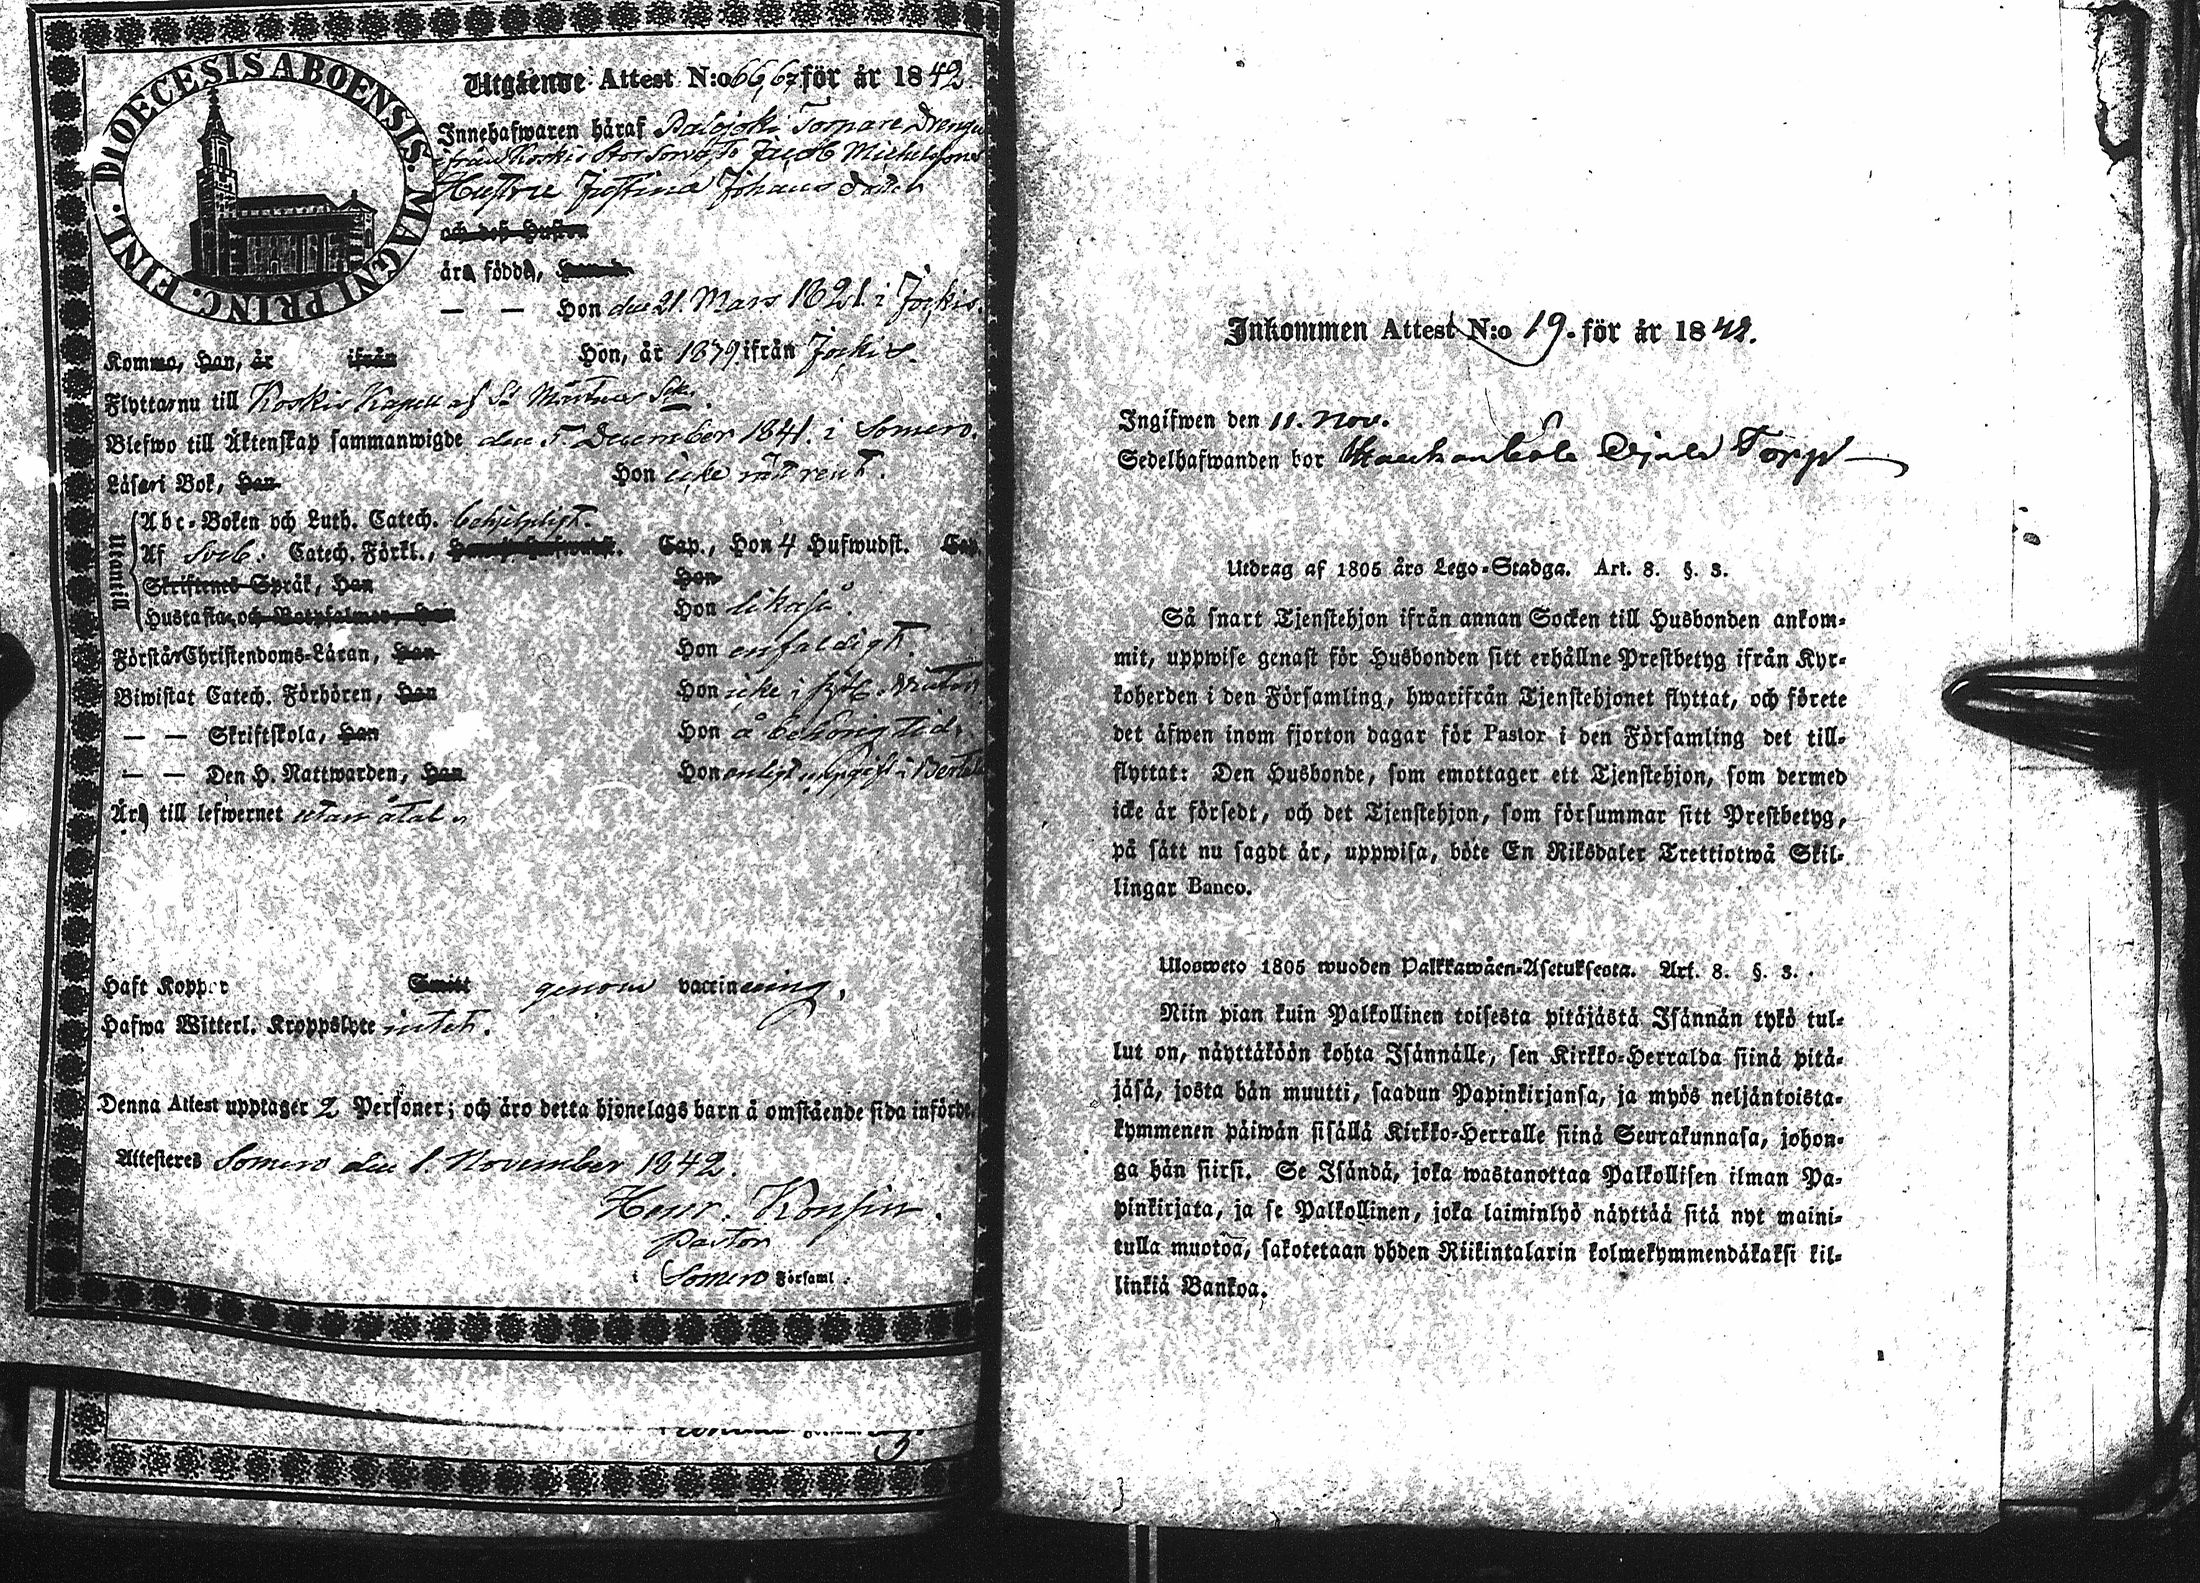 DIOECESIS ABOENSIS. MAGNI PRINC. FINL.
Utgående Attest N:o 66,67 för år 1842.
Innehafwaren håraf Palojoki Torpare Drengen
ifrån Koskis Jacob Michelssons
Hustru Justina Johans dotter
och deß Hustru
år född,
— — Hon den 21. Mars 1821. i Jockis.
Komm, Han, år ifrån Hon, år 1839. ifrån Jockis.
Flyttar nu till Koskis Kapell af St Mårtens Sokn.
Blefwo till Äktenskap sammanwigde den 5. December 1841. i Somero.
Läser i Bok, Han Hon icke rätt rent.
Utantill
Abc-Boken och Luth. Catech. behjelpligt.
Af Sveb. Catech. Förkl., Cap., Hon 4 Hufwudst. Cap.
Skriftenes Språk, Han Hon
Hustafla, och Botpsalmer, Han Hon likaså.
Förstår Christendoms-Läran, Han Hon enfaldigt.
Biwistat Catech. Förhören, Han Hon icke i sistl. Vinter
— — Skriftskola, Han Hon å behörig tid.
— — Den H. Nattwarden, Han Hon enligt uppgift i
Är till lefwernet utan åtal.
Haft Koppor Smitt genom vaccinering.
Hafwa Witterl. Kroppslyte intet.
Denna Attest upptager 2 Personer; och äro detta hjonelags barn å omstående sida införde.
Attesteres Somero den 1. November 1842.
Henr. Konsin.
Pastor
i Somero Församl.
Inkommen Attest N:o 19. för år 1842.
Ingifwen den 11. Nov.
Sedelhafwanden bor Torp
Utdrag af 1805 års Lego-Stadga. Art. 8. §. 3.
Så snart Tjenstehjon ifrån annan Socken till Husbonden ankom-
mit, uppwise genast för Husbonden sitt erhållne Prestbetyg ifrån Kyr-
koherden i den Församling, hwarifrån Tjenstehjonet flyttat, och förete
det äfwen inom fjorton dagar för Pastor i den Församling det till-
flyttat: Den Husbonde, som emottager ett Tjenstehjon, som dermed
icke är försedt, och det Tjenstehjon, som försummar sitt Prestbetyg,
på sätt nu sagdt är, uppwisa, böte En Riksdaler Trettiotwå Skil-
lingar Banco.
Ulosweto 1805 wuoden Palkkawäen-Asetuksesta. Art. 8. §. 3.
Niin pian kuin Palkollinen toisesta pitäjästä Isännän tykö tul-
lut on, näyttäköön kohta Isännälle, sen Kirkko-Herralda siinä pitä-
jäsä, josta hän muutti, saadun Papinkirjansa, ja myös neljäntoista-
kymmenen päiwän sisällä Kirkko-Herralle siinä Seurakunnasa, johon-
ga hän siirsi. Se Isändä, joka wastanottaa Palkollisen ilman Pa-
pinkirjata, ja se Palkollinen, joka laiminlyö näyttää sitä nyt maini-
tulla muotoa, sakotetaan yhden Riikintalarin kolmekymmendäkaksi kil-
linkiä Bankoa.